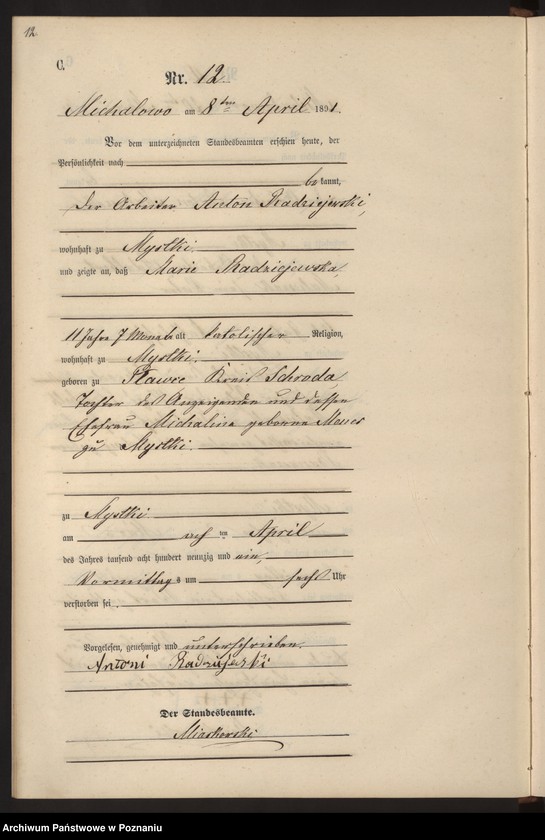 12
C.
Nr. 12
Michalowo am 8ten April 1891.
Vor dem unterzeichneten Standesbeamten erschien heute, der
Persönlichkeit nach
bekannt,
der Arbeiter Anton Radziejewski,
wohnhaft zu Mystki
und zeigte an, daß Marie Radziejewska,
11 Jahre 7 Monate alt katolischer Religion,
wohnhaft zu Mystki
geboren zu Kreis Schroda,
Tochter des Anzeigenden und dessen
Ehefrau Michalina geborene
zu Mystki
zu Mystki
am acht ten April
des Jahres tausend acht hundert neunzig und ein,
Vormittags um sechs Uhr
verstorben sei.
Vorgelesen, genehmigt und unterschrieben.
Antoni
Der Standesbeamte.
Miaskowski
Archiwum Państwowe w Poznaniu